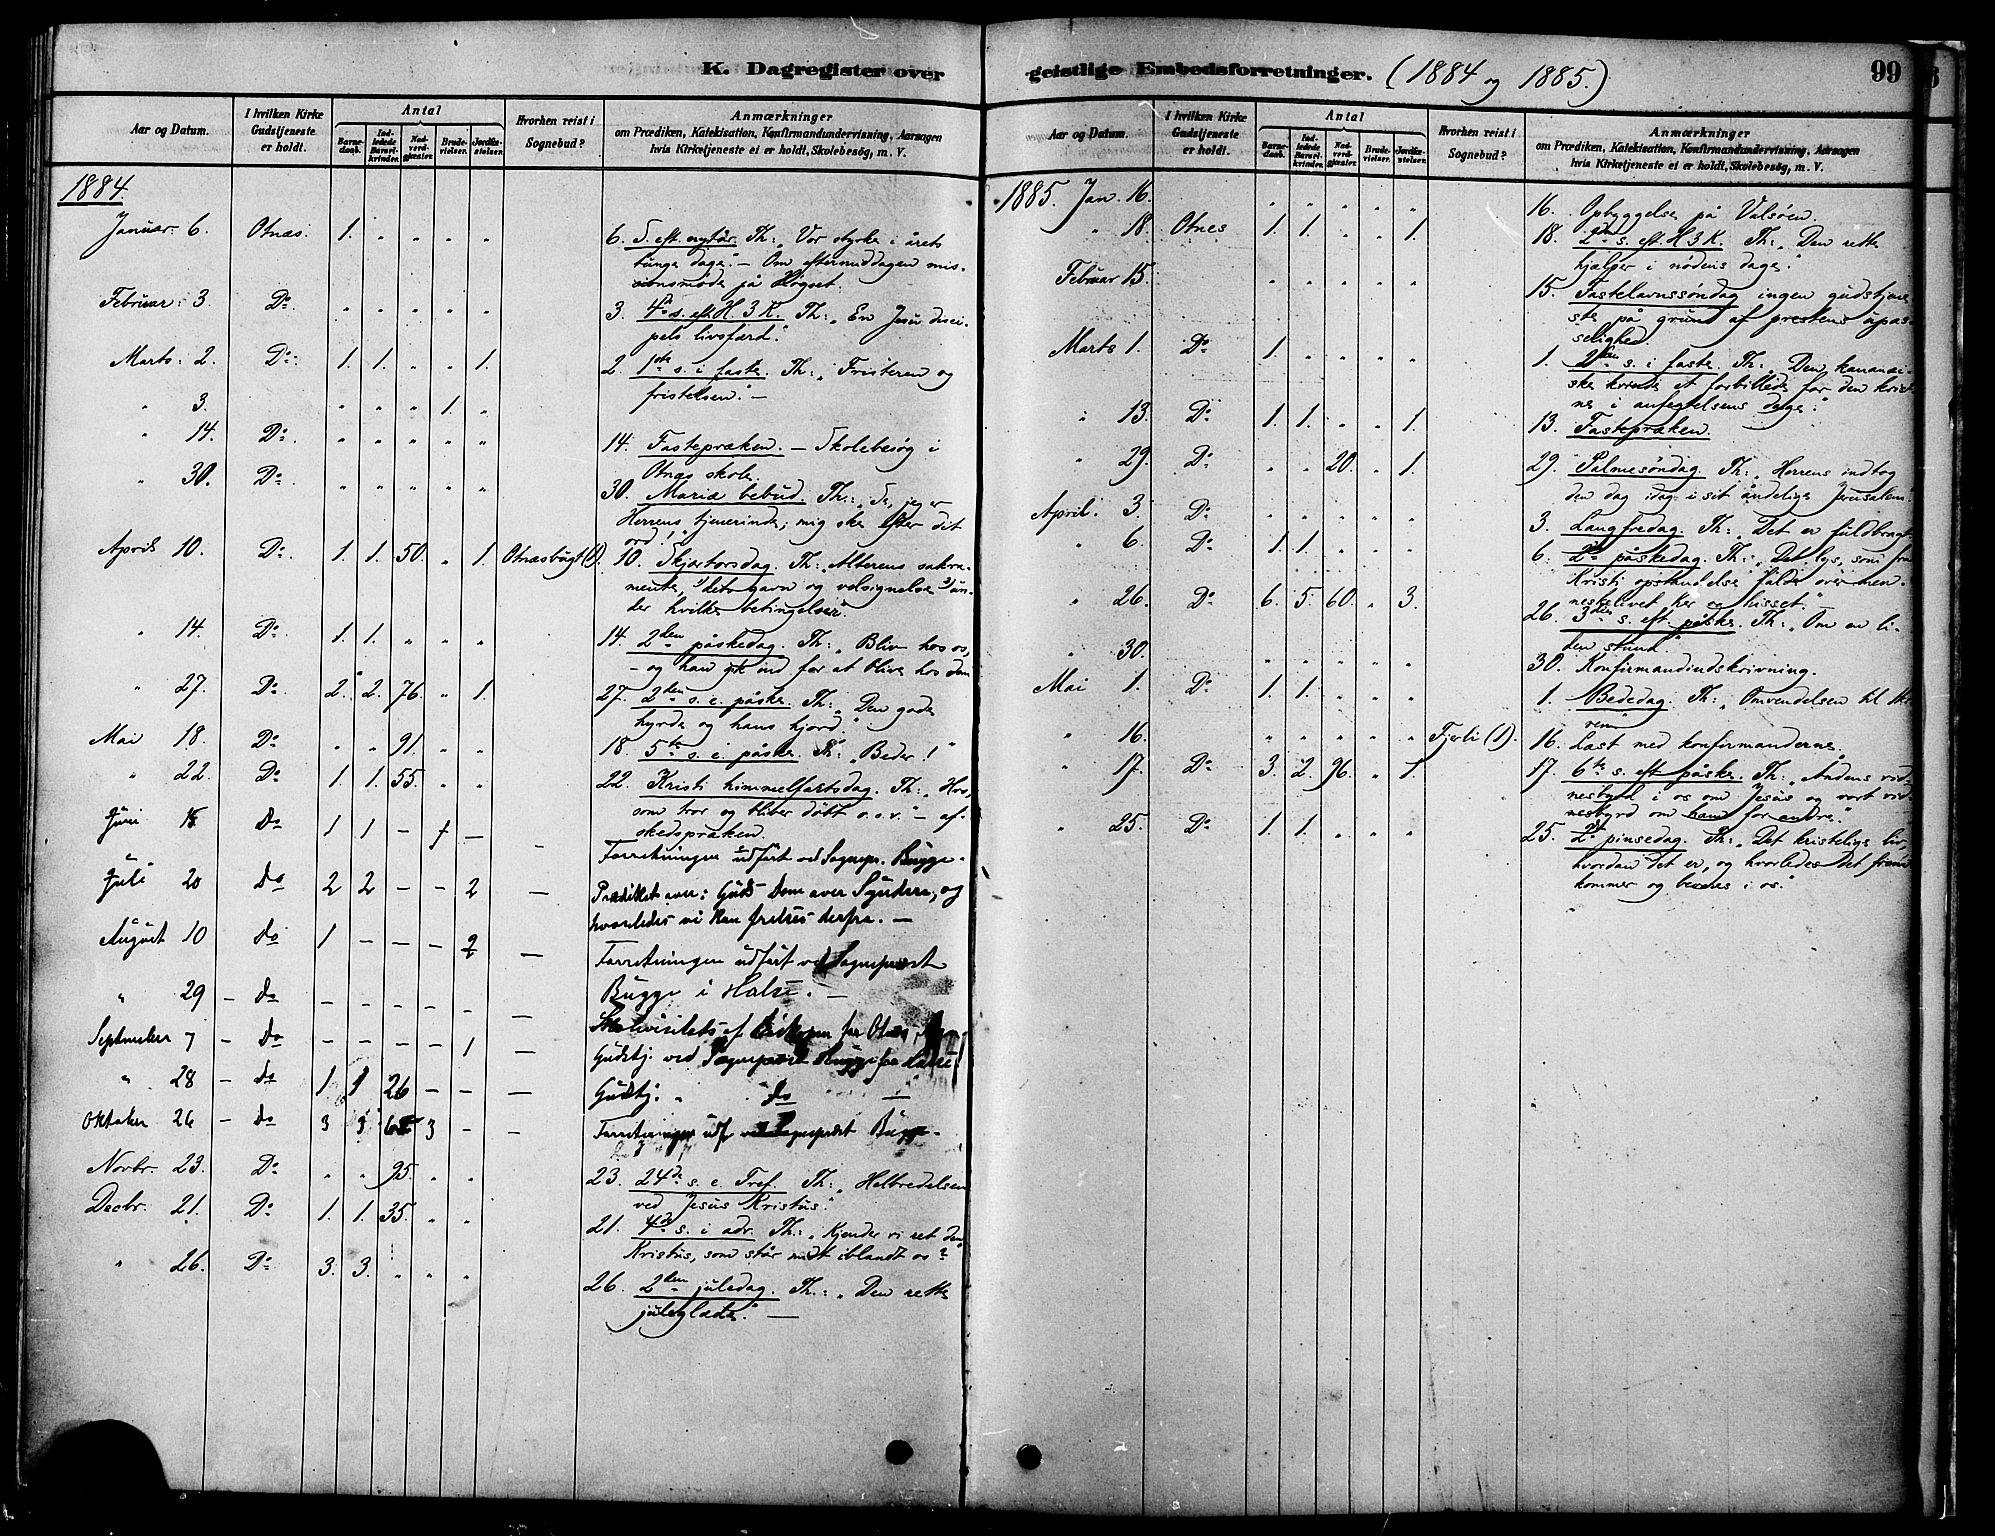 K. Dagregister over
Aar og Datum.
I hvilken Kirke Gudstjeneste er holdt.
Antal
Barne-daab.
Ind-ledede Barsel-kvinder.
Nad-verd-gjæster.
Brude-vielser.
Jordfæ-stelser.
Hvorhen reist i Sognebud?
Anmærkninger
om Prædiken, Katekisation, Konfirmandundervisning, Aarsagen
hvis Kirketjeneste ei er holdt, Skolebesøg, m. V.
1884.
Januar. 6. Otnæs. 1. " " " " 6. S. eft. nytår. Th: "Vor styrke i årets
tunge dage." – Om eftermiddagen mis-
sionsmöde på Høgset.
Februar: 3. Do. " " " " " 3. 4de s. eft. H. 3 K. Th: "En Jesu disci-
pels livsfærd."
Marts: 2. Do. 1. 1. " " 1. 2. 1ste s. i faste. Th: "Fristeren og
fristelsen." –
" 3. " " " 1. "
" 14. Do. " " " " " 14. Fastepræken. – Skolebesøg i
Otnæs skole.
" 30. Do. " " " " " 30. Mariæ bebud. Th: "Se, jeg er
Herrens tjenerinde; mig ske efter dit
ord!"
April 10. Do. 1. 1. 50. " 1. Otnæsbugt (1). 10. Skjærtorsdag. Th: "Alterens sakra-
mente, detsgavn og velsignelse un-
der hvilke betingelser."
" 14. Do. 1. 1. " " " 14. 2den påskedag. Th: "Bliv hos os,
– og han gik ind for at blive hos dem
" 27. Do. 2. 2. 76. " 1. 27. 2den s. e. påske. Th: "Den gode
hyrde og hans hjord."
Mai 18. Do. " " 91. " " 18. 5te s. e. påske. Th: "Beder!"
" 22. Do. 1. 1. 55. " " 22. Kristi himmelfartsdag. Th: "Hvo,
som tror og bliver døbt o.s.v." – af-
skedspræken.
Juni 15 Do 1 1 – 1 – – Forretningen udført ved Sognepr. Bugge.
Juli 20 Do 2 2 – – 2 – Prædiket over: Guds Dom over Syndere, og
hvorledes vi kan frelses derfra. –
August 10 do 1 – – – 2 – Forretningen udført ved Sognepræst
Bugge i Halse. –
" 29 – do – – – – – –
September 7 – do – – – – 1 – Gudstj. ved Sognepræst Bugge fra Halse
" 28 – do 1 1 26 – – – Gudstj. " do –
Oktober 26 – do 3 3 3 – – Forretninger udf ved Sognepræst Bugge.
Novbr. 23. Do. " " 95. " " 23. 24de s. e. Tref. Th: "Helbredelsen
ved Jesus Kristus."
Decbr. 21. Do. 1. 1. 35. " " 21. 4de s. i adv. Th: "Kjender vi ret den
Kristus, som står midt iblandt os?
" 26. Do. 3. 3. " " " 26. 2den juledag. Th: "Den rette
juleglæde." –
geistlige Embedsforretninger. (1884 og 1885.) 99
Aar og Datum.
I hvilken Kirke Gudstjeneste er holdt.
Antal
Barne-daab.
Ind-ledede Barsel-kvinder.
Nad-verd-gjæster.
Brude-vielser.
Jordfæ-stelser.
Hvorhen reist i Sognebud?
Anmærkninger
om Prædiken, Katekisation, Konfirmandundervisning, Aarsagen
hvis Kirketjeneste ei er holdt, Skolebesøg, m. V.
1885. Jan. 16. " " " " " 16. Opbyggelse på Valsøen.
" 18. Otnes 1. 1. " " 1. 18. 2den s. eft. H 3 K. Th: "Den rette
hjælper i nødens dage."
Februar 15. " " " " " 15. Fastelavnssøndag ingen gudstjene-
ste på grund af prestens upas-
selighed.
Marts 1. Do 1. " " " " 1. 2den s. i faste. Th: "Den kananæi-
ske kvinde et forbillede for den krist-
ne i anfegtelsens dage."
" 13. Do 1. 1. " " 1. 13. Fastepræken.
" 29. Do " " 20. " 1. 29. Palmesøndag. Th: "Herrens indtog
den dag idag i sit åndelige Jerusalem."
April. 3. Do " " " " " 3. Langfredag. Th: "Det er fuldbragt
" 6. Do 1. 1. " " " 6. 2den påskedag. Th: "Det lys, som fra
Kristi opstandelse falder over men-
neskelivet her og hisset."
" 26. Do 6. 5. 60. " 3. 26. 3die s. eft. påske. Th: "Om en li-
den stund."
" 30. " " " " " 30. Konfirmandindskrivning.
Mai 1. Do 1. 1. " " " 1. Bededag. Th: "Omvendelsen til
" 16. " " " " " Fjerli (1). 16. Læst med konfirmanderne.
" 17. Do 3. 2. 96. " 1. 17. 6te s. eft påske. Th: "Åndens vid-
nesbyrd i os om Jesus og vort vid-
nesbyrd om ham for andre."
" 25. Do 1. 1. " " " 25. 2den pinsedag. Th: "Det kristelige liv,
hvordan det er, og hvorledes det frem-
kommer og bevares i os."